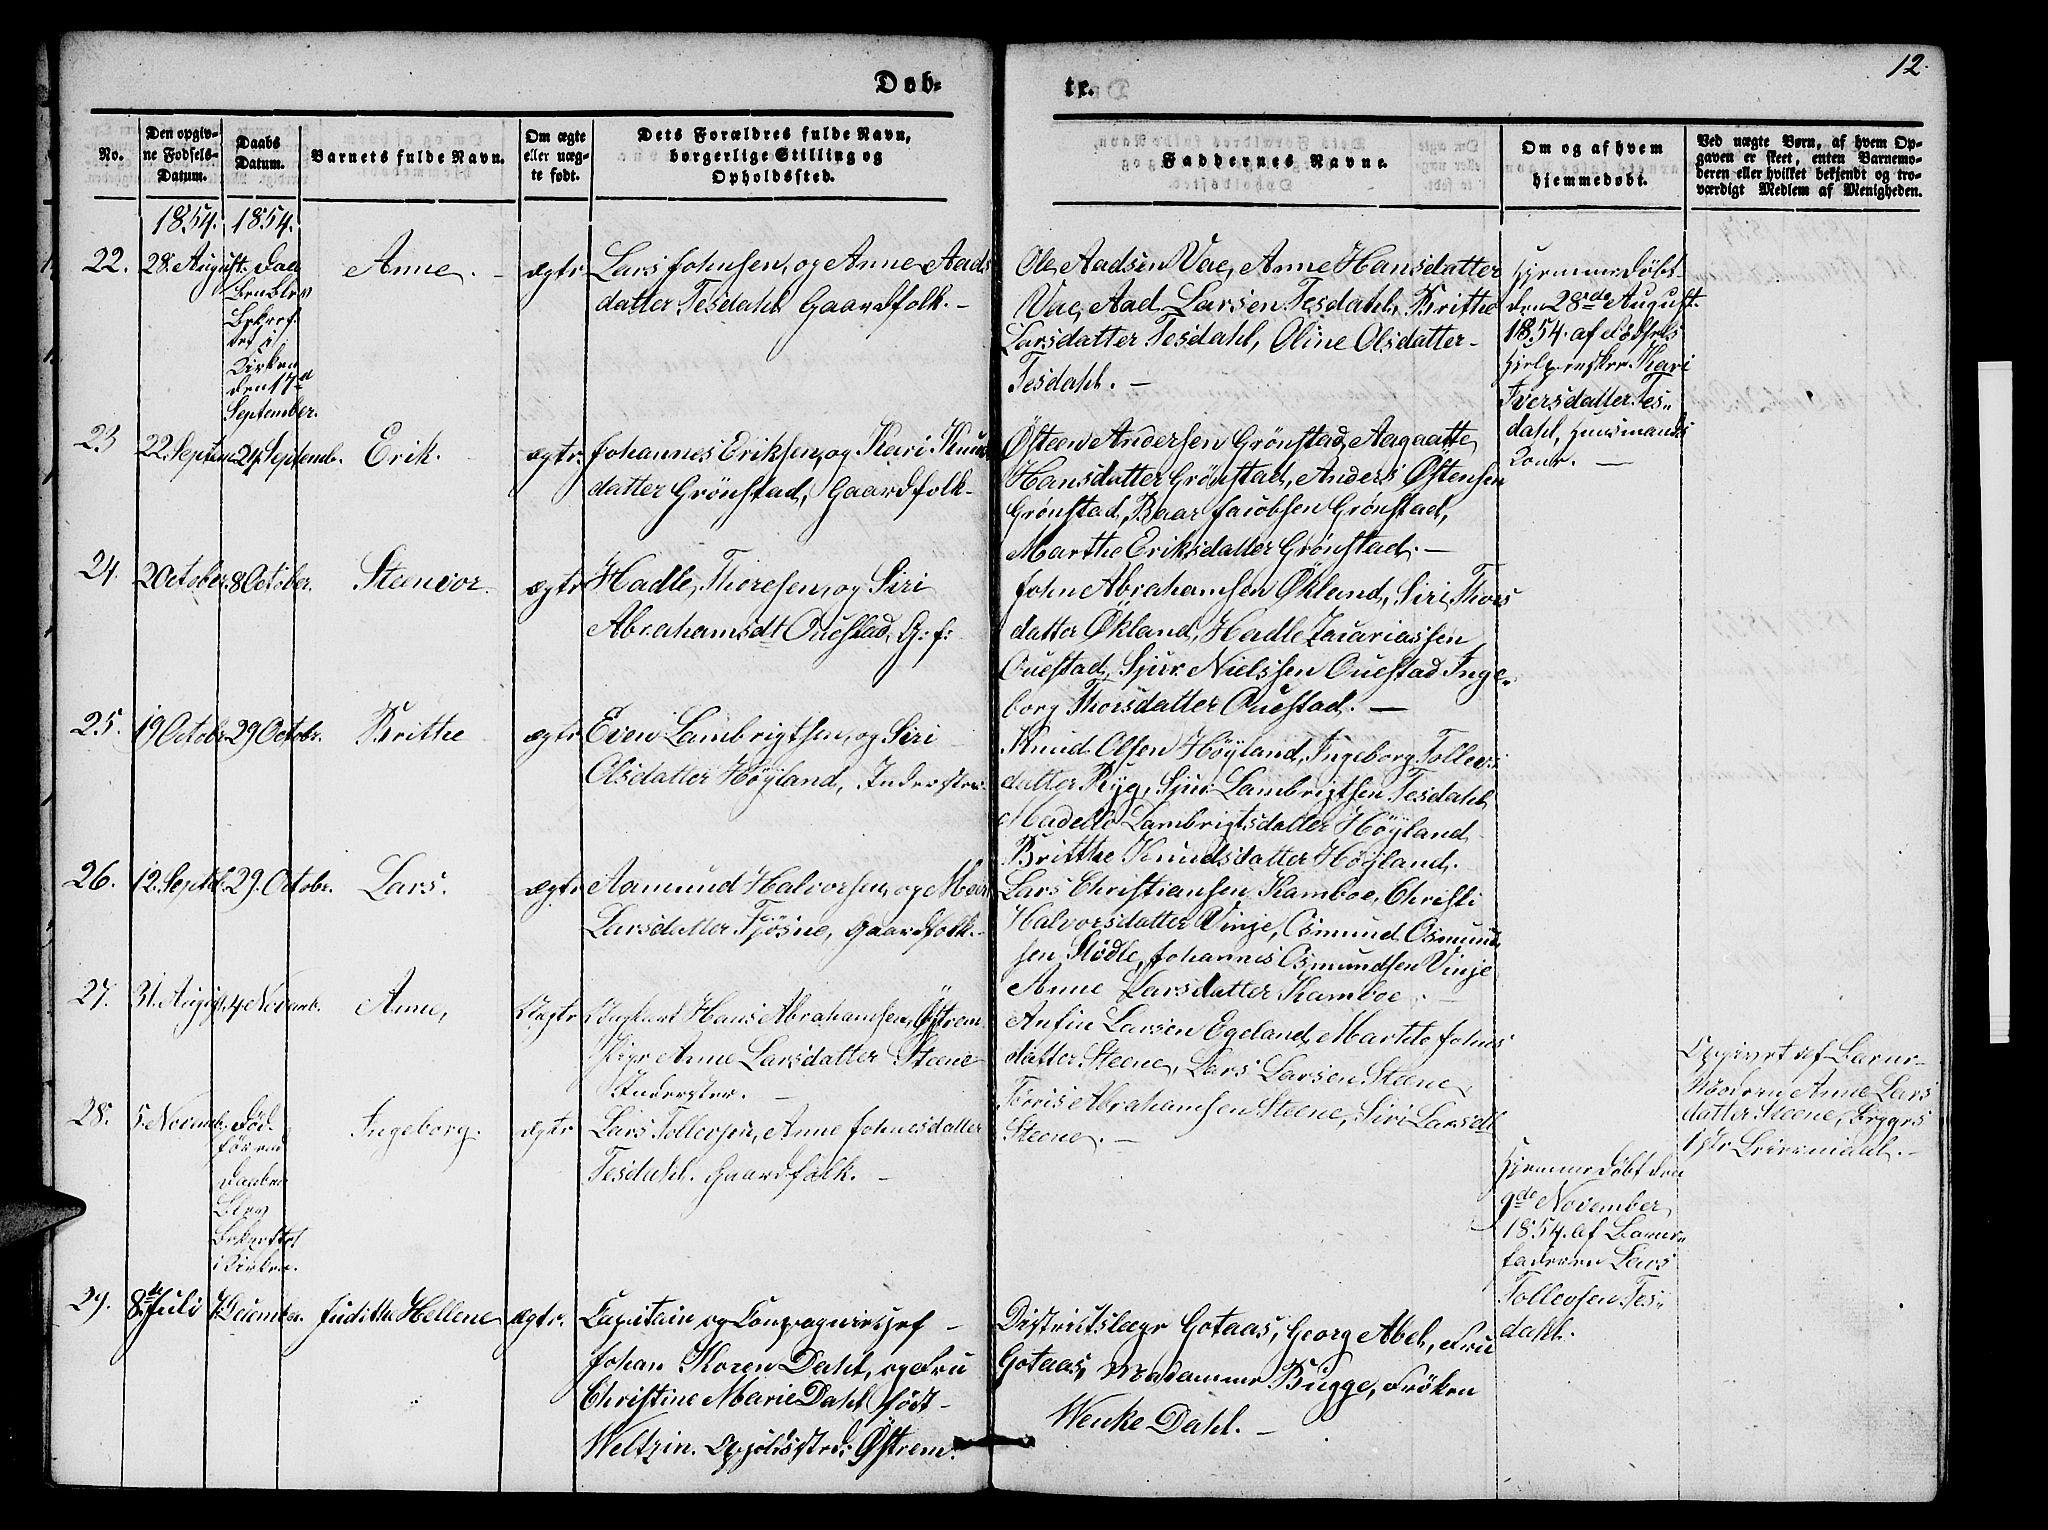 12.
Døb-
te.
No.
Den opgiv-
ne Fødsels-
Datum.
Daabs
Datum.
Barnets fulde Navn.
Om ægte
eller uæg-
te født.
Dets Forældres fulde Navn,
borgerlige Stilling og
Opholdssted.
Faddernes Navne.
Om og af hvem
hjemmedøbt.
Ved uægte Børn, af hvem Op-
gaven er skeet, enten Barnemo-
deren eller hvilket bekjendt og tro-
værdigt Medlem af Menigheden.
1854. 1854.
22.
28. August.
Daa-
ben blev
Bekref-
tet i
Kirken
den 17d
September.
Anne. -
ægte
Lars Johnsen, og Anne Aads
datter Tesdahl Gaardfolk. -
Ole Aadsen Vae, Anne Hansdatter
Vae, Aad Larsen Tesdahl, Britthe
Larsdatter Tesdahl, Oline Olsdatter
Tesdahl. -
Hjemmedöbt
den 28de August
1854. af Födsels
hjelpersken Kari
Iversdatter Tes-
dahl, Huusmands
Kone. -
23
22. Septem
24. Septemb.
Erik.
ægte.
Johannes Eriksen, og Kari Knuds
datter Grönstad, Gaardfolk.
Östen Andersen Grönstad, Aagaatte
Hansdatter Grönstad, Anders Östensen
Grönstad, Baar Jacobsen Grönstad,
Marthe Eriksdatter Grönstad. -
24.
2 October.
8 October.
Stenvor.
ægte
Hadle Thoresen, og Siri
Abrahamsdt Ouestad, G: f:
John Abrahamsen Ökland, Siri Thors
datter Ökland, Hadle Zacariassen
Ouestad, Sjur Nielssen Ouestad Inge-
borg Thorsdatter Ouestad. -
25.
19 Octobr.
29 Octobr.
Britthe
ægte
Even Lambrigtsen, og Siri
Olsdatter Höyland, Inderster.
Knud Olsen Höyland, Ingeborg Tollevs
datter Ryg, Sjur Lambrigtsen Tesdahl
Madelle Lambrigtsdatter Höyland
Britthe Knudsdatter Höyland.
26.
12. Septbl.
29. Octobr.
Lars.
ægte
Aamund Halvorsen, og Mari
Larsdatter Fjösne, Gaardfolk. -
Lars Christiansen Kamboe, Christi
Halvorsdatter Vinje, Osmund Osmund
sen Stödle, Johannes Osmundsen Vinje
Anne Larsdatter Kamboe. -
27.
31. August.
4 Novemb.
Anne,
Uægte
Ungkarl Hans Abrahamsen Östrem
Pige Anne Larsdatter Steene
Inderster. -
Anfin Larsen Egeland, Marthe Johns
datter Steene, Lars Larsen Steene,
Törris Abrahamsen Steene, Siri Larsdt
Steene. -
Opgivet af Barne-
moderen Anne Lars
datter Steene,
28.
5. Novemb.
Död
förend
Daaben
blev
bekreftet
i Kirken.
Ingeborg.
ægte
Lars Tollevsen, Anne Johnesdatter
Tesdahl. Gaardfolk. -
Hjemmedöbt den
9de November
1854. af Barne-
faderen Lars
Tollevsen Tes-
dahl.
29.
8de Juli
7. Decembr.
Judithe Hellene
ægte.
Capitain og Compagniesjef -
Johan Koren Dahl, og Fru
Christine Marie Dahl född -
Weltzin. Opholdssted: Östrem.
Districtslæge Gotaas, Georg Abel, Fru
Gotaas, Madamme Bugge, Fröken
Wenke Dahl. -